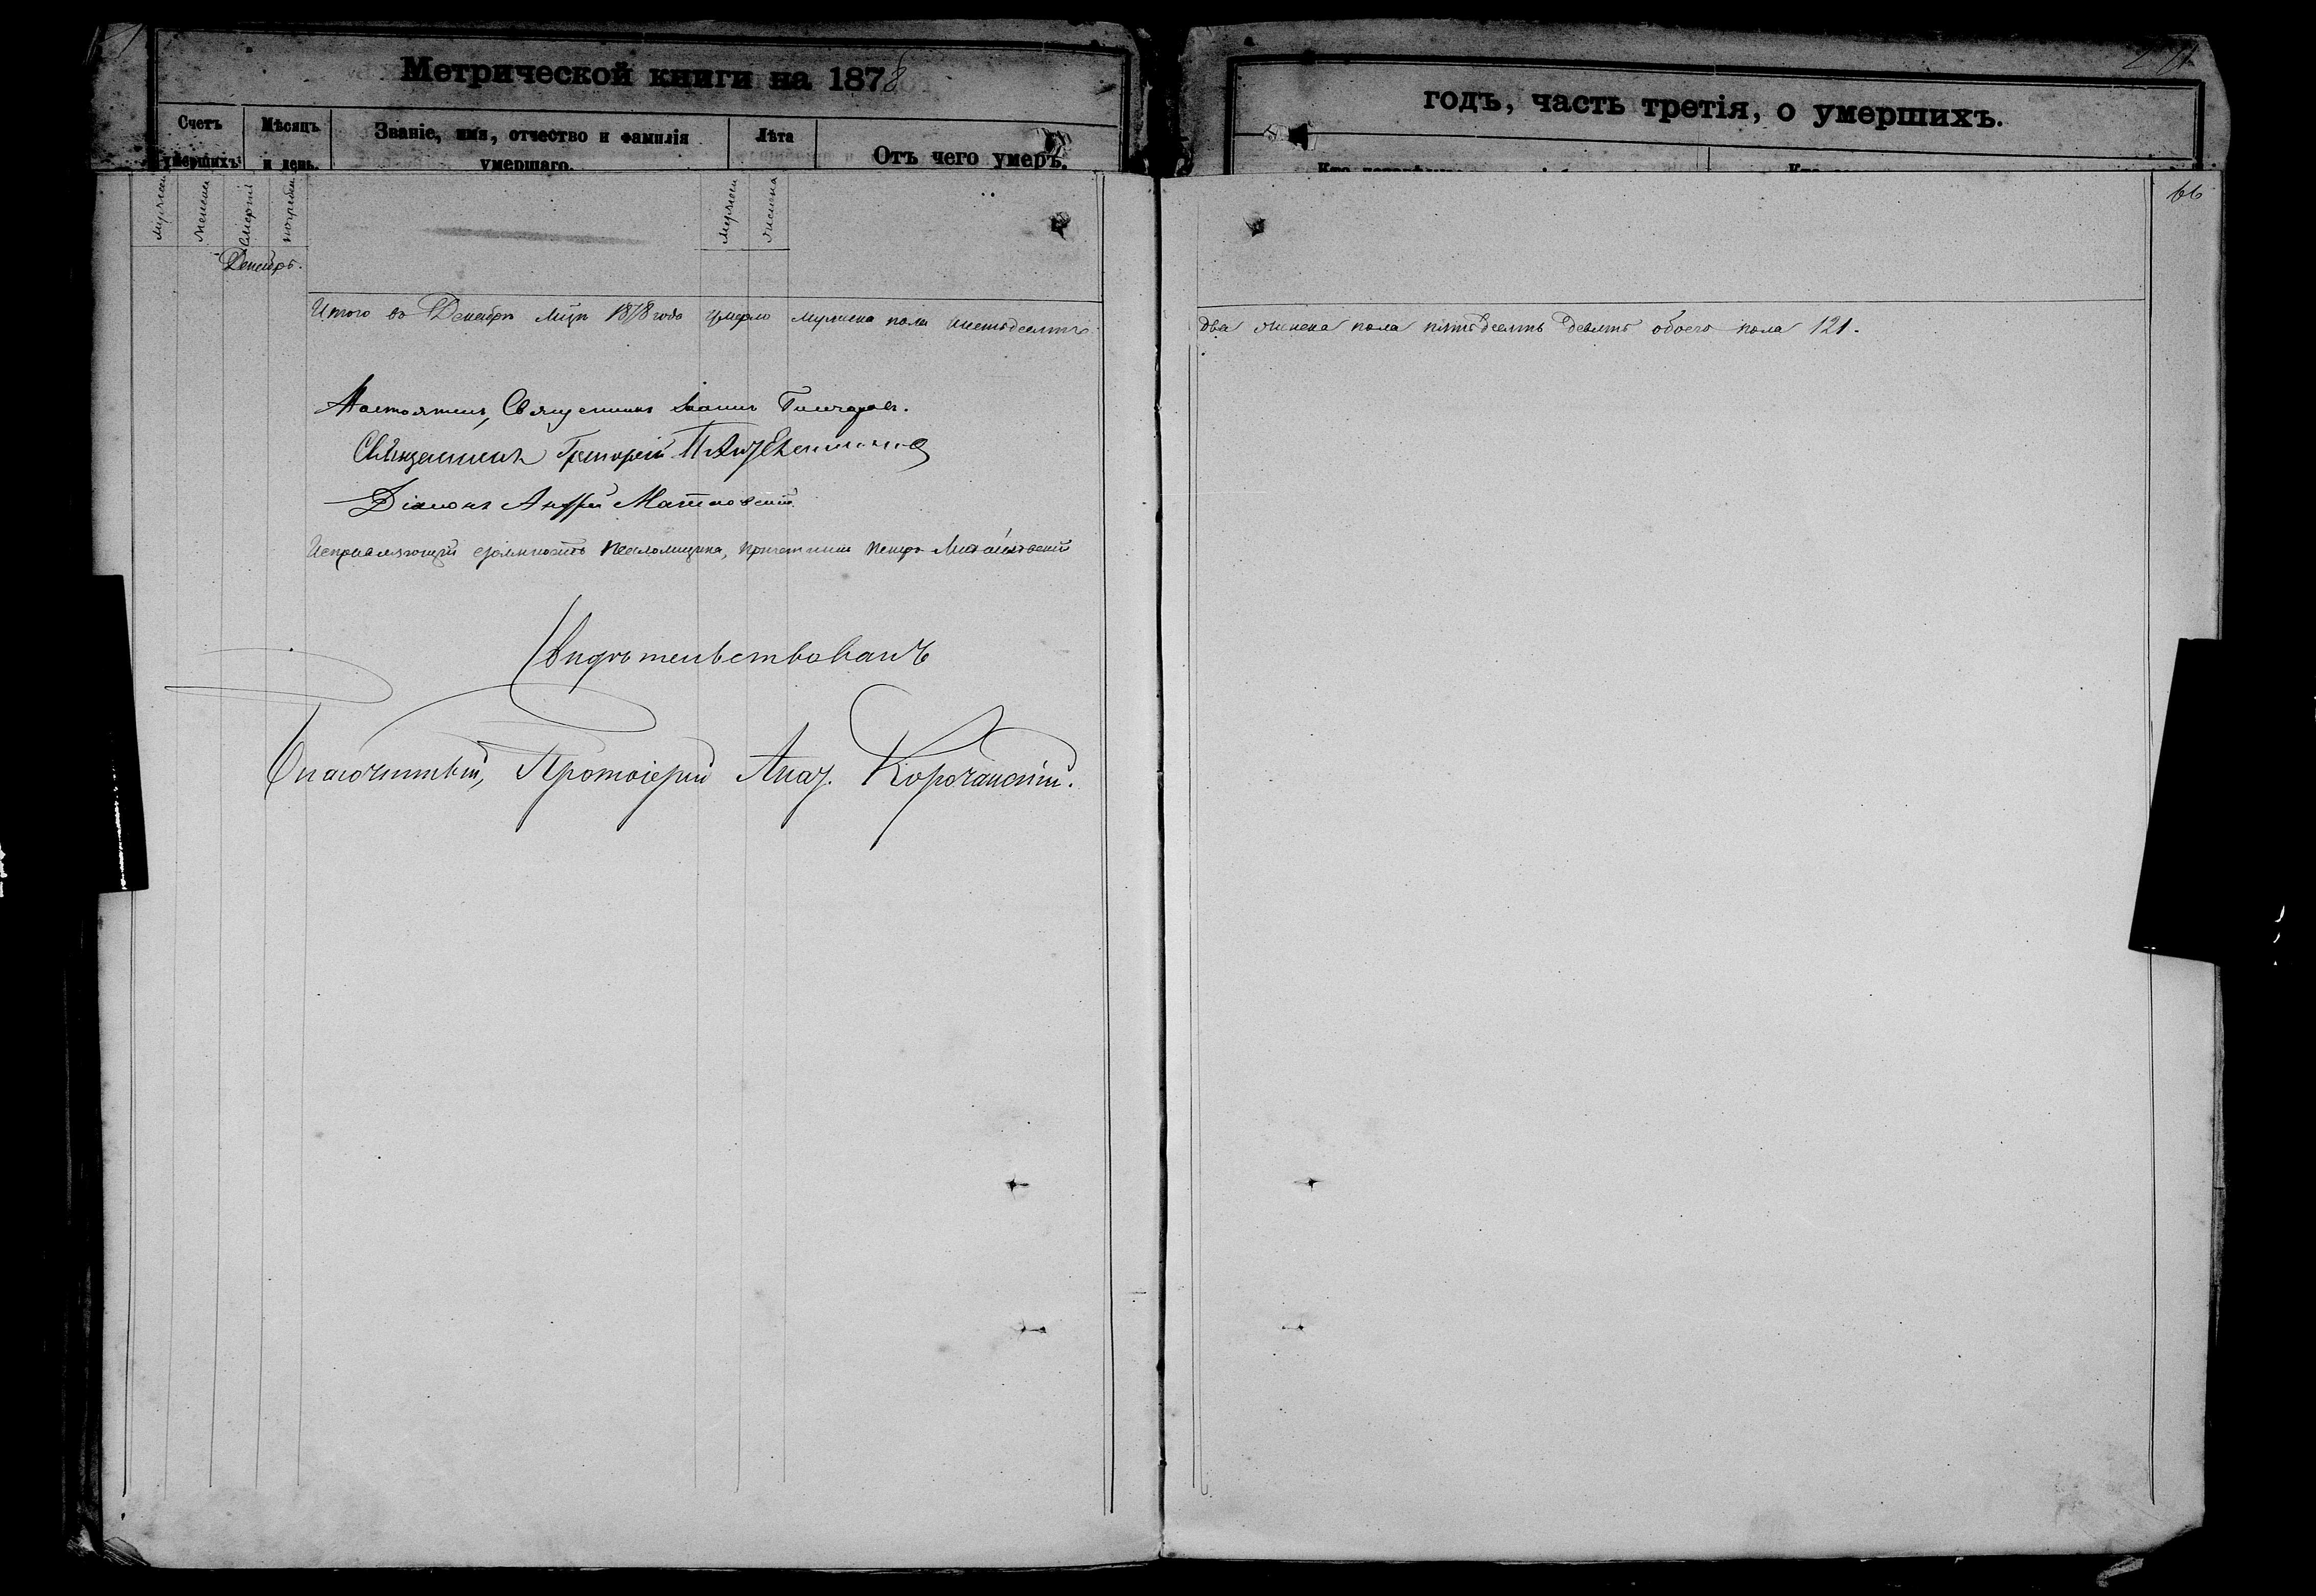 Метрической книги на 1878
годъ, часть третія, о умершихъ.
Счетъ умершихъ.
Мѣсяцъ и день.
Званіе, имя, отчество и фамилія умершаго.
Лѣта
Отъ чего умеръ.
66
Декабрь.
Итого въ Декабрѣ м-цѣ 1878 года умерло мужеска пола шестьдесятъ
два женска пола пятьдесятъ девять обоего пола 121.
Настоятель, Священникъ Іоаннъ
Священникъ Григорій
Діаконъ Андрей
Исправляющій должность псаломщика, причетникъ Петръ
Свидѣтельствовалъ
Благочинный, Протоіерей Корочанскій.